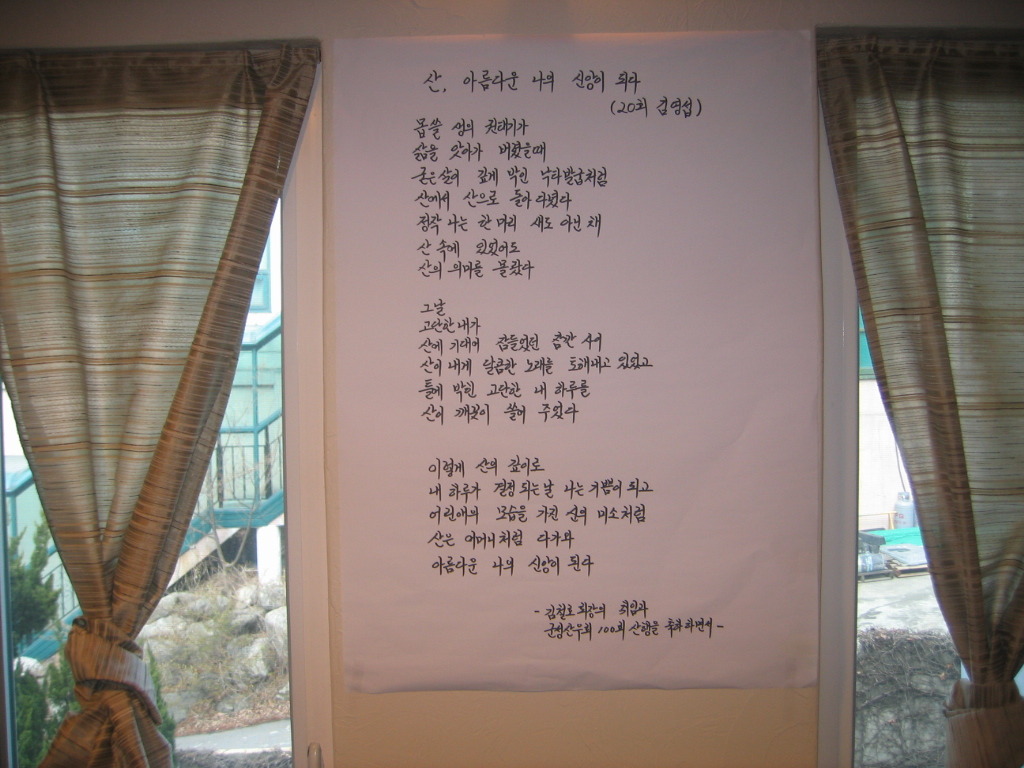 산, 아름다운 나의 신앙이 되다
(20회 김영섭)
몹쓸 생의 찌꺼기가
삶을 앗아가 버렸을때
굳은살이 깊게 박힌 낙타발굽처럼
산에서 산으로 돌아 다녔다
정작 나는 한 마리 새도 아닌 채
산 속에 있었어도
산의 의미를 몰랐다
그날
고단한 내가
산에 기대어 잠들었던 잠깐 사이
산이 내게 달콤한 노래를 토해내고 있었고
틀에 박힌 고단한 내 하루를
산이 깨끗이 쓸어 주었다
이렇게 산의 깊이로
내 하루가 결정 되는 날 나는 기쁨이 되고
어린애의 모습을 가진 신의 미소처럼
산은 어머니처럼 다가와
아름다운 나의 신앙이 된다
- 김철호 회장의 취임과
산우회 100회 산행을 축하 하면서 -